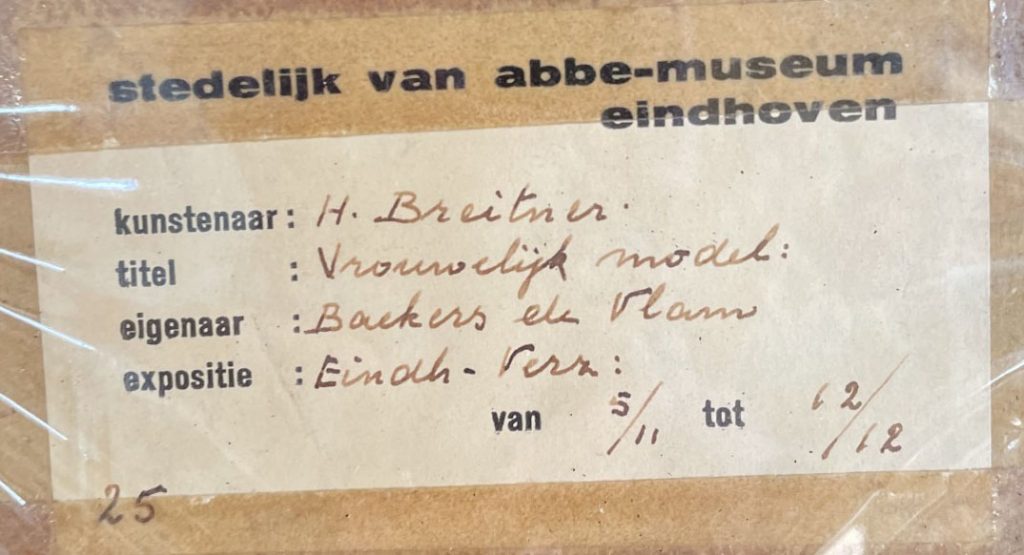 stedelijk van abbe-museum
eindhoven
kunstenaar: H. Breitner.
titel : Vrouwelijk model:
eigenaar : Backers de Vlam
expositie : Eindh - Verz:
van 5/11 tot 12/12
25